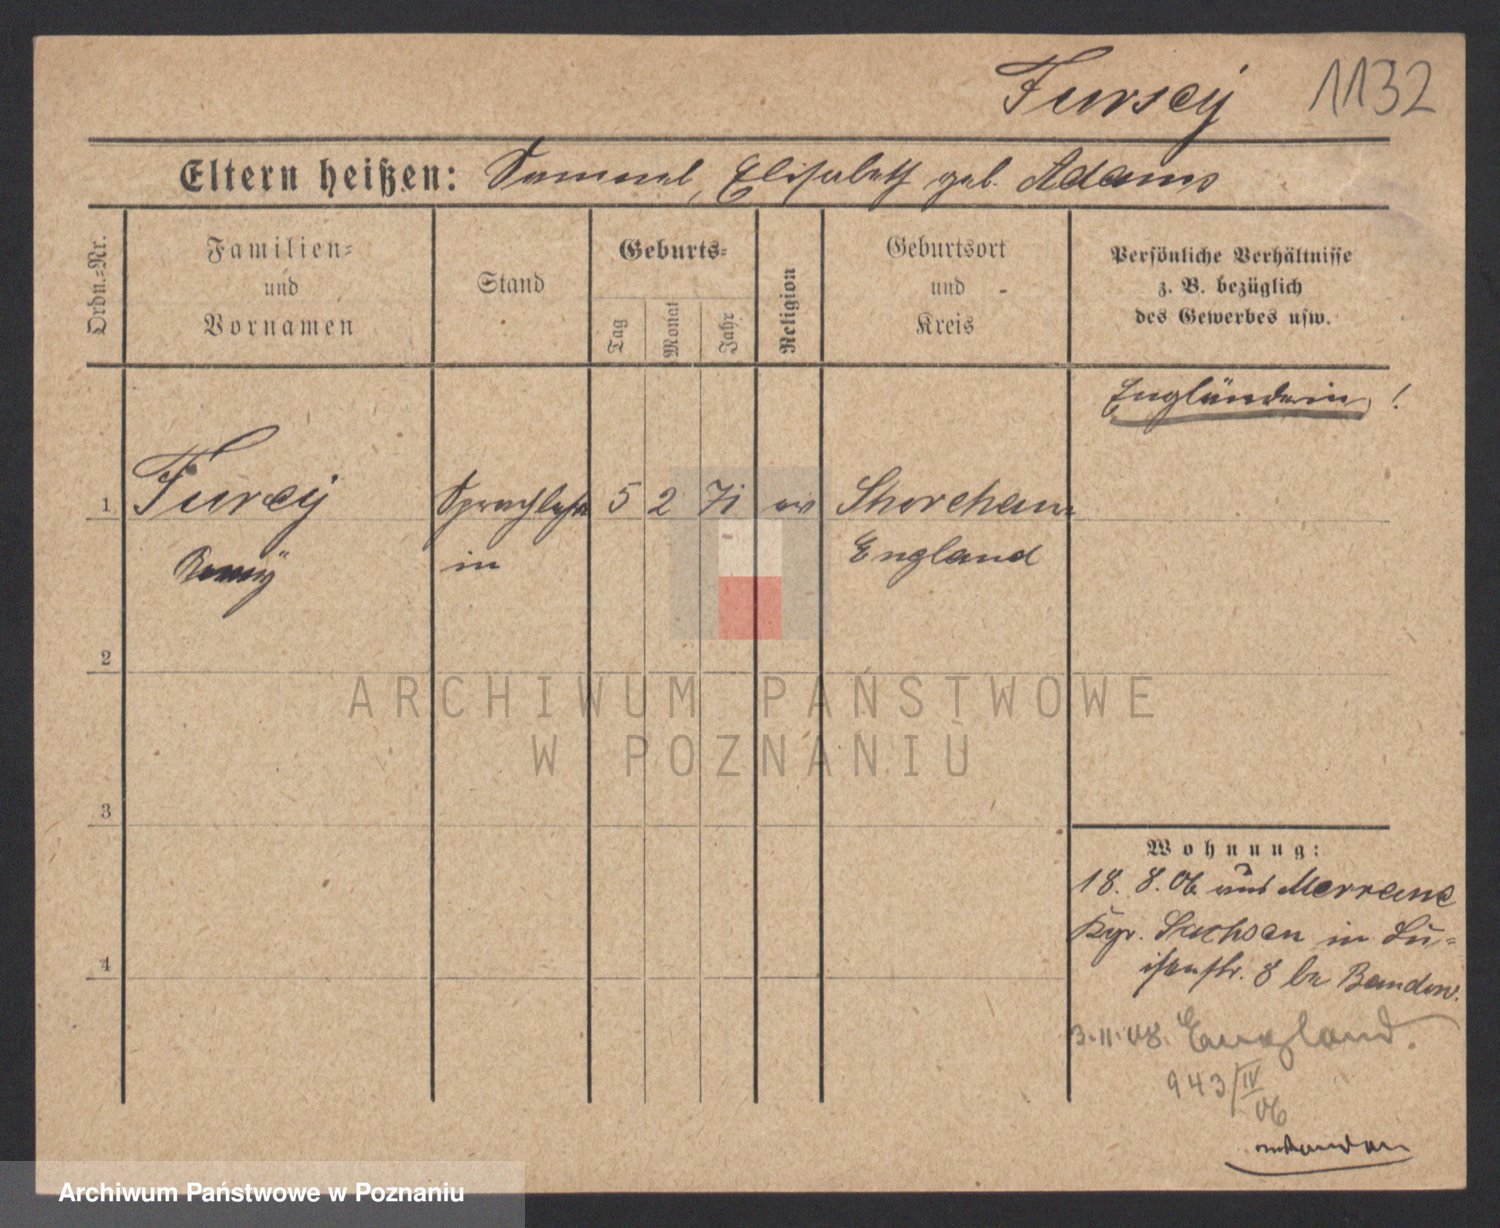 Fursey 1132
Eltern heißen: Samuel, Elisabeth geb. Adams
Ordn.=Nr.
Familien=
und
Vornamen
Stand
Geburts=
Tag
Monat
Jahr
Religion
Geburtsort
und
Kreis
Persönliche Verhältnisse
z. B. bezüglich
des Gewerbes usw.
Engländerin!
1 Furcy Sprachlehr 5 2 71 ev Shoreham
in England
2
3
4
Wohnung:
18. 8. 06 aus Merrane
Kgr. Sachsen in Lu=
isenstr. 8 be
3.11.08. England.
943/IV
06
ARCHIWUM PAŃSTWOWE
W POZNANIU
Archiwum Państwowe w Poznaniu